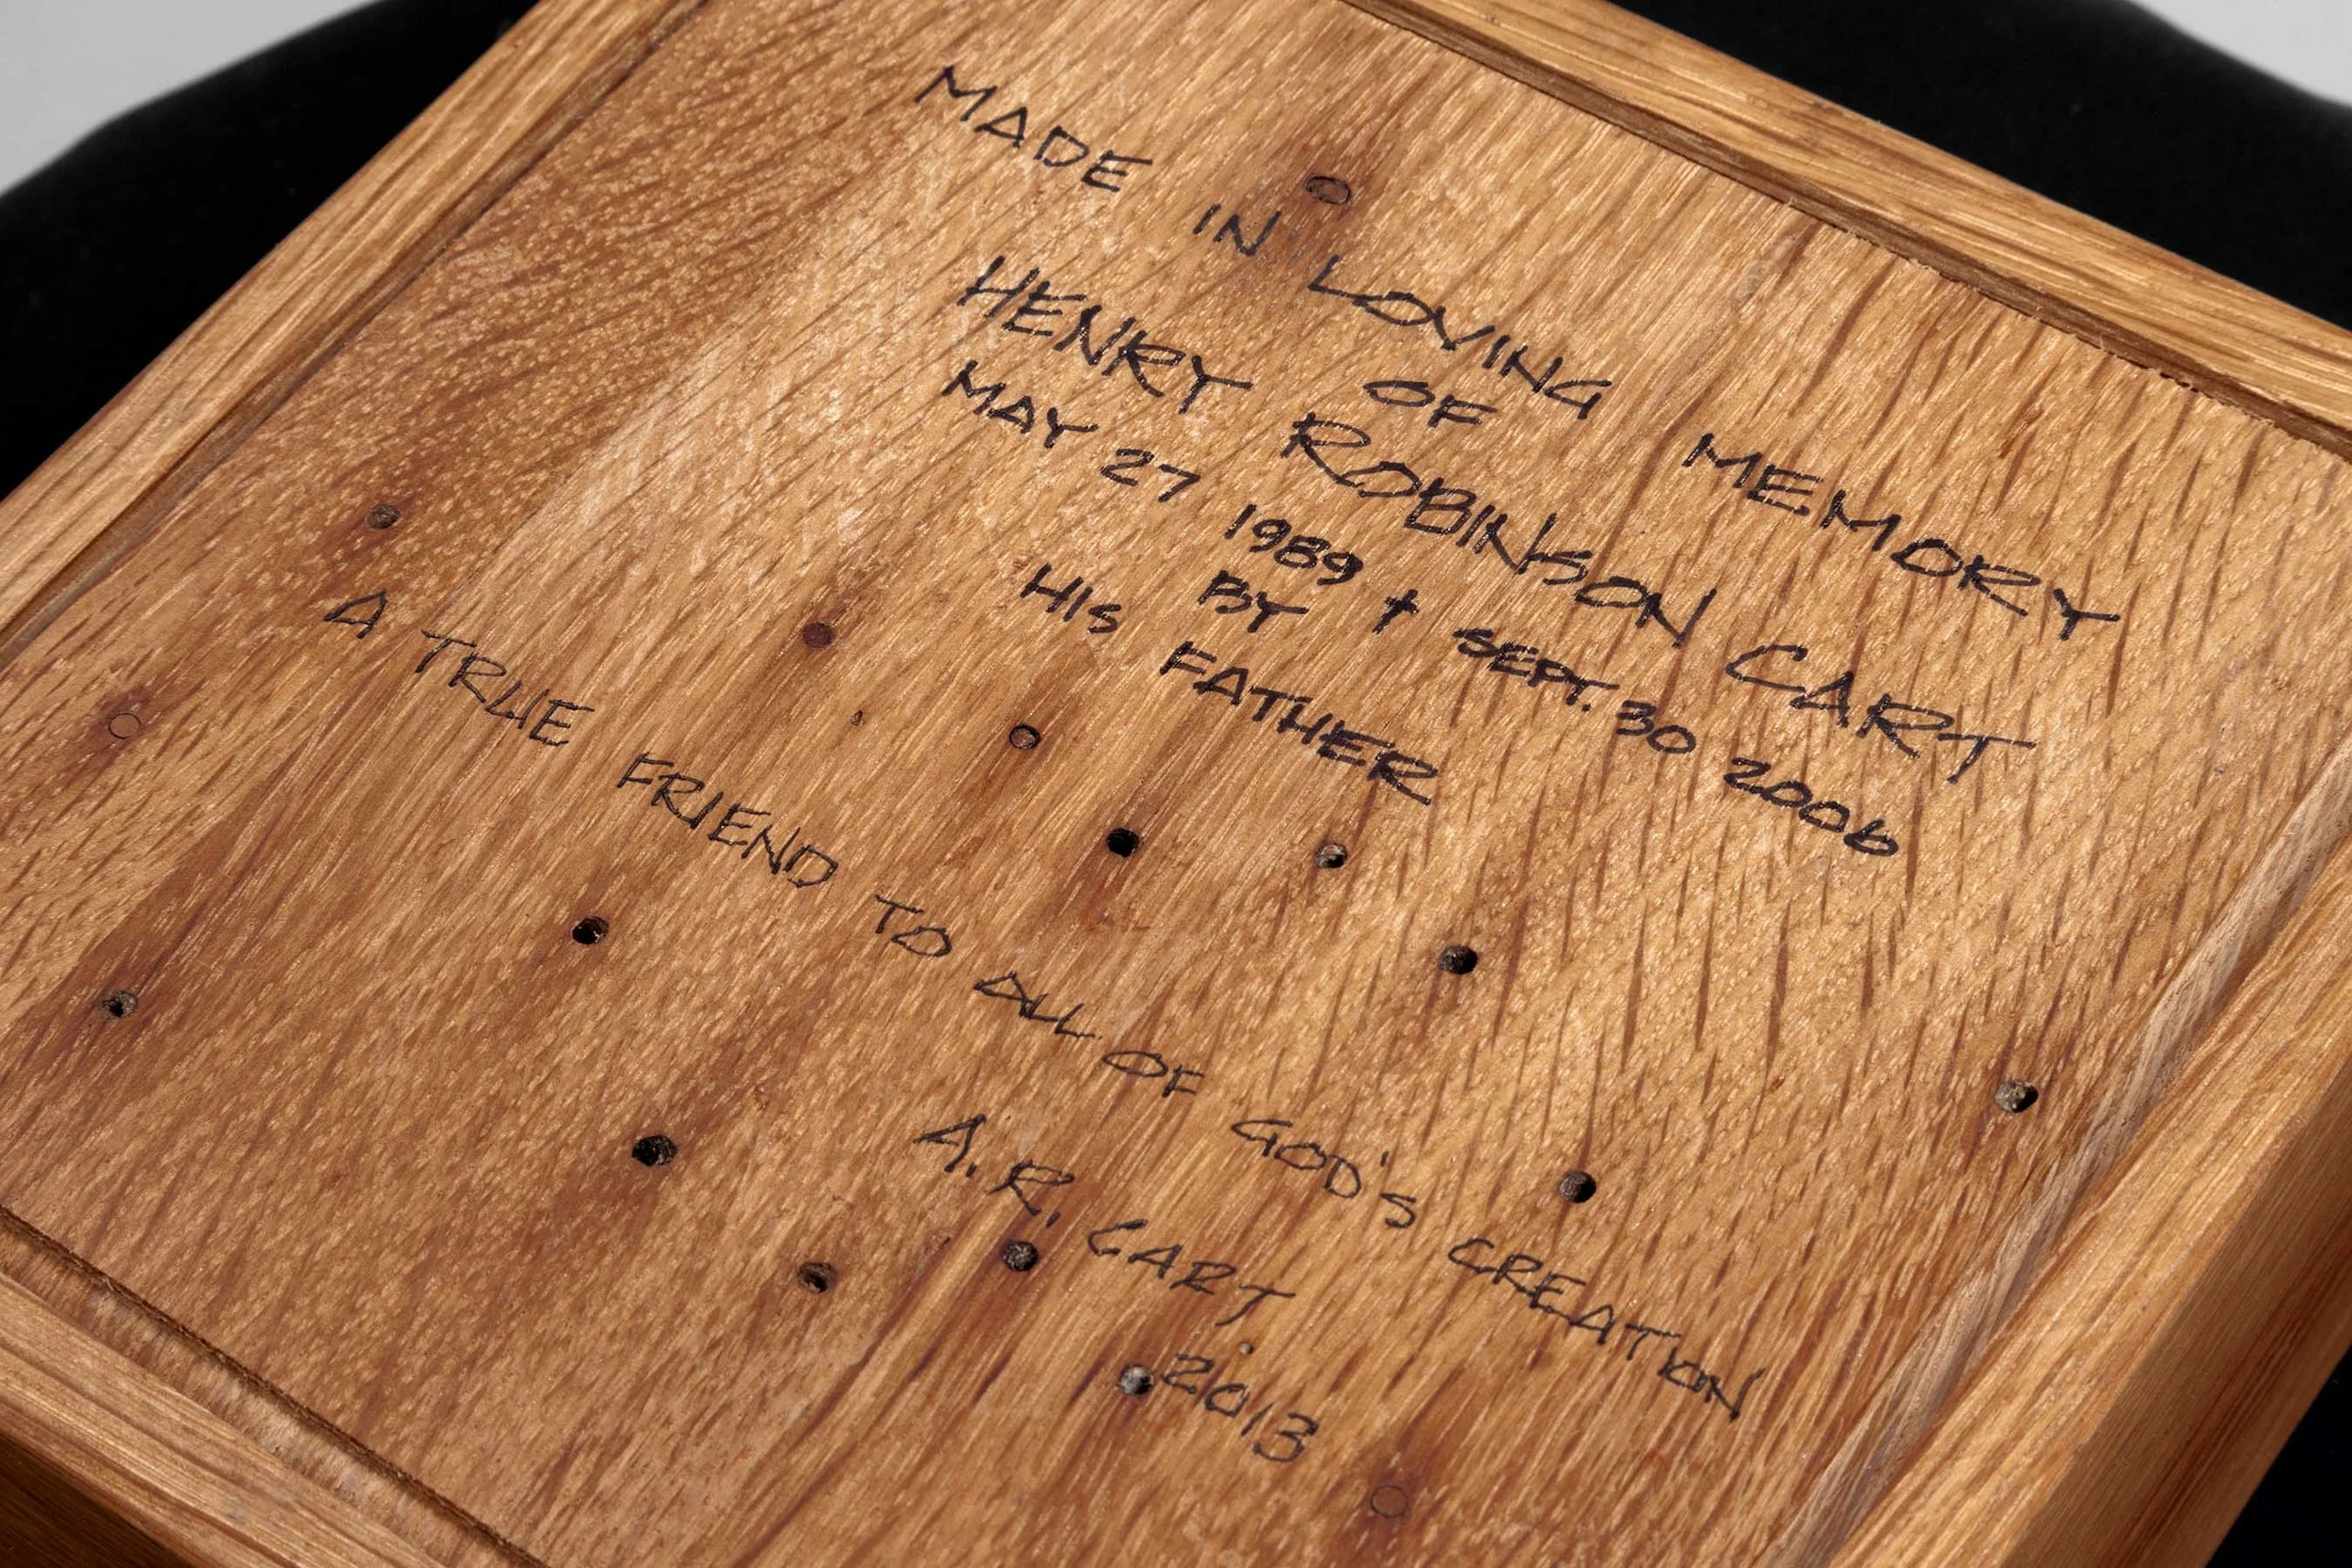 MADE IN LOVING MEMORY
OF
HENRY ROBINSON CART
MAY 27 1989 † SEPT. 30 2006
BY
HIS FATHER
A TRUE FRIEND TO ALL OF GOD'S CREATION
A. R. CART
2013